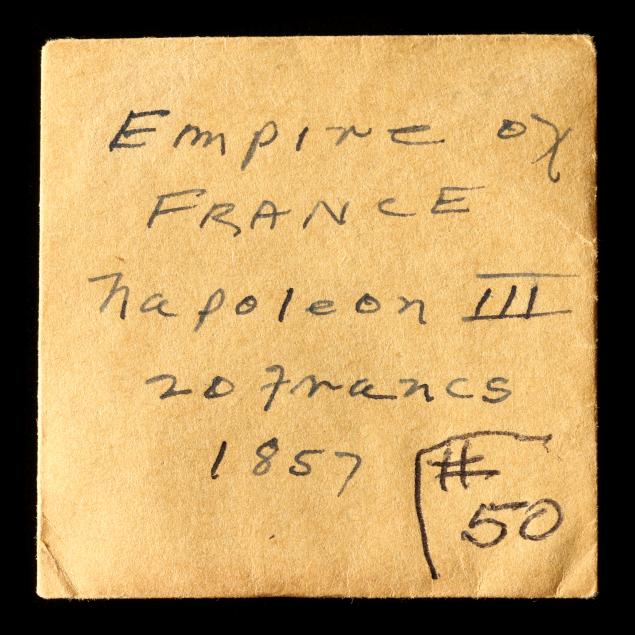 Empire of
FRANCE
Napoleon III
20 francs
1857
#
50